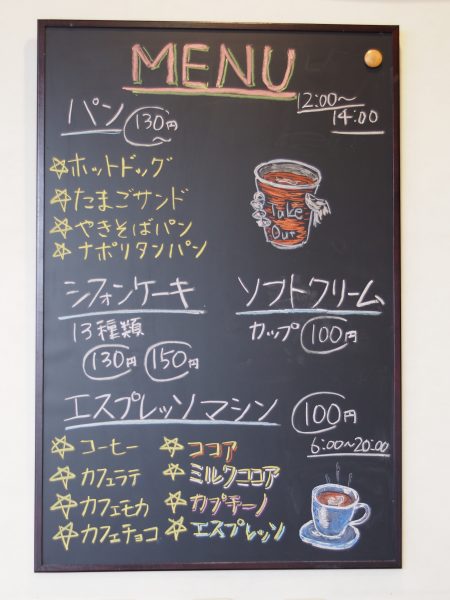 MENU
12:00～
14:00
パン 130円～
☆ホットドッグ
☆たまごサンド
☆やきそばパン
☆ナポリタンパン
Take
Out
シフォンケーキ
13種類
130円 150円
ソフトクリーム
カップ 100円
エスプレッソマシン 100円
6:00～20:00
☆コーヒー ☆ココア
☆カフェラテ ☆ミルクココア
☆カフェモカ ☆カプチーノ
☆カフェチョコ ☆エスプレッソ